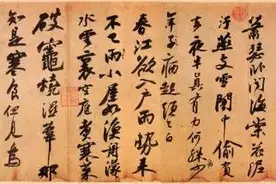 蕭瑟卧聞海棠花泥
汙燕支雪闇中偷負
去夜半真有力何殊少
年子病起頭已白
春江欲入戶雨勢來
不已雨小屋如漁舟濛〻
水雲裏空庖煮寒菜
破竈燒濕葦那
知是寒食但見烏